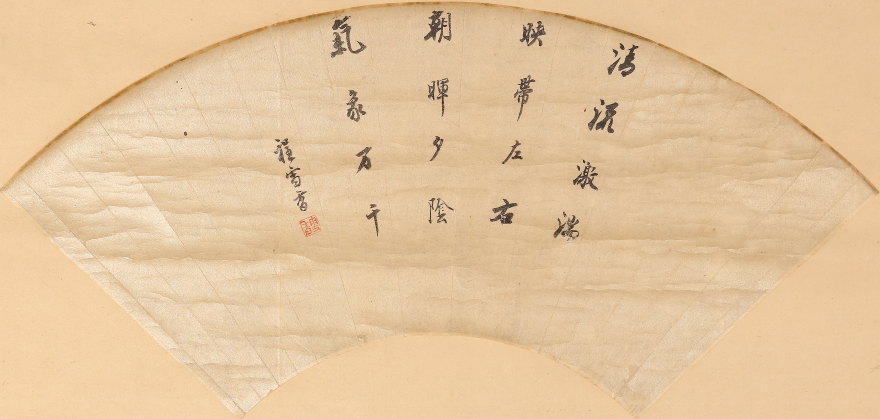 清流激湍
映帶左右
朝暉夕陰
氣象万千